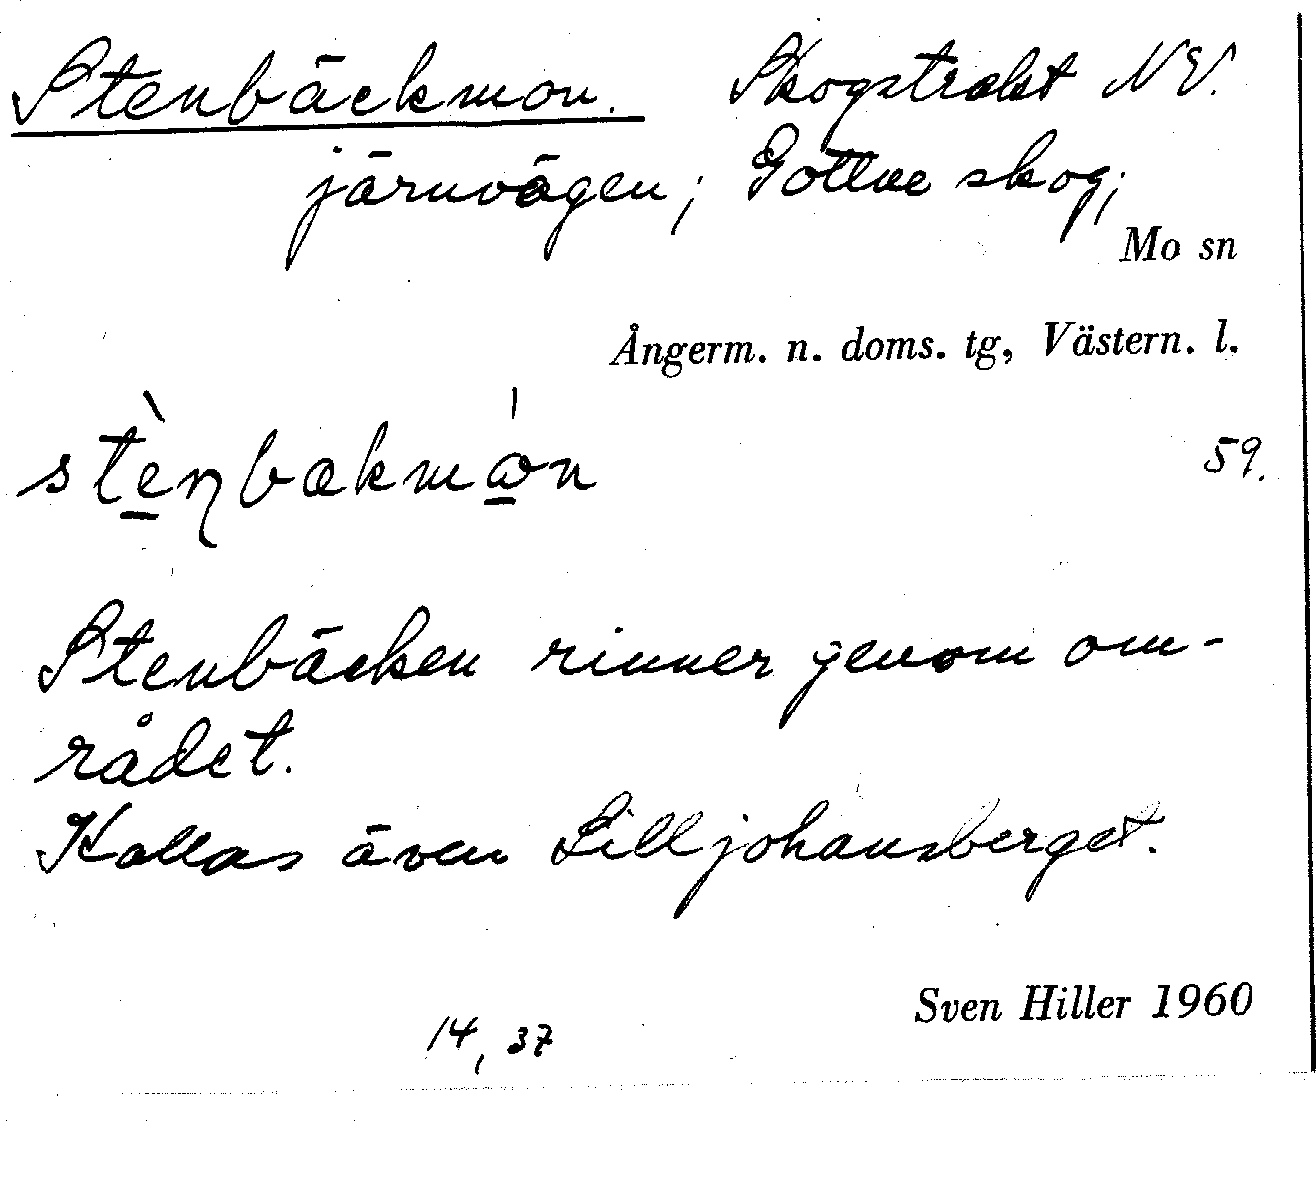 Stenbäckmon. Skogstrakt NV.
järnvägen; Gottne skog;
Mo sn
Ångerm. n. doms. tg, Västern. l.
59.
Stenbäcken rinner genom om-
rådet.
Kallas även Lilljohansberget.
Sven Hiller 1960
14, 37